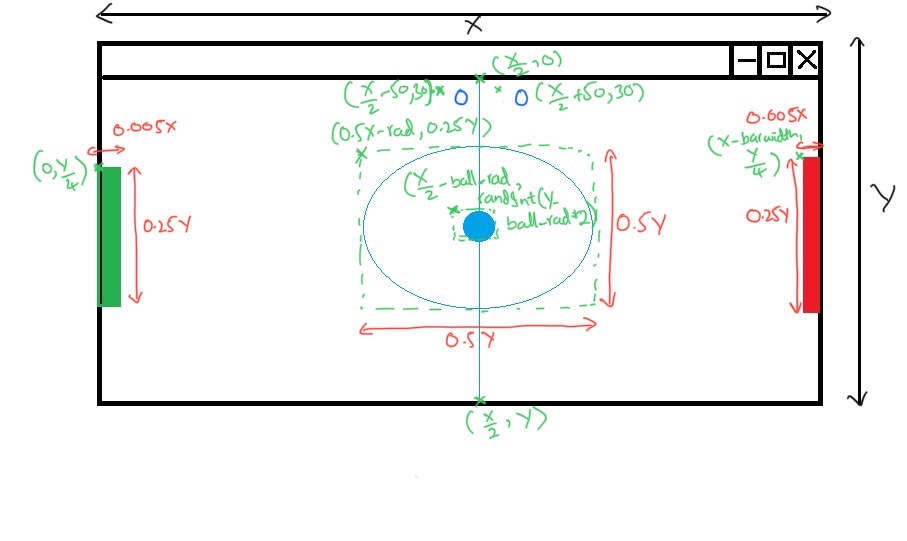 X
(X/2, 0)
(X/2 - 50, 30)
0
0
(X/2 + 50, 30)
0.005X
0.005X
(0.5X - rad, 0.25Y)
(X - barwidth, Y/4)
(0, Y/4)
(X/2 - ball-rad,
randInt(Y-
ball-rad*2)
0.25Y
0.5Y
0.25Y
Y
0.5Y
(X/2, Y)